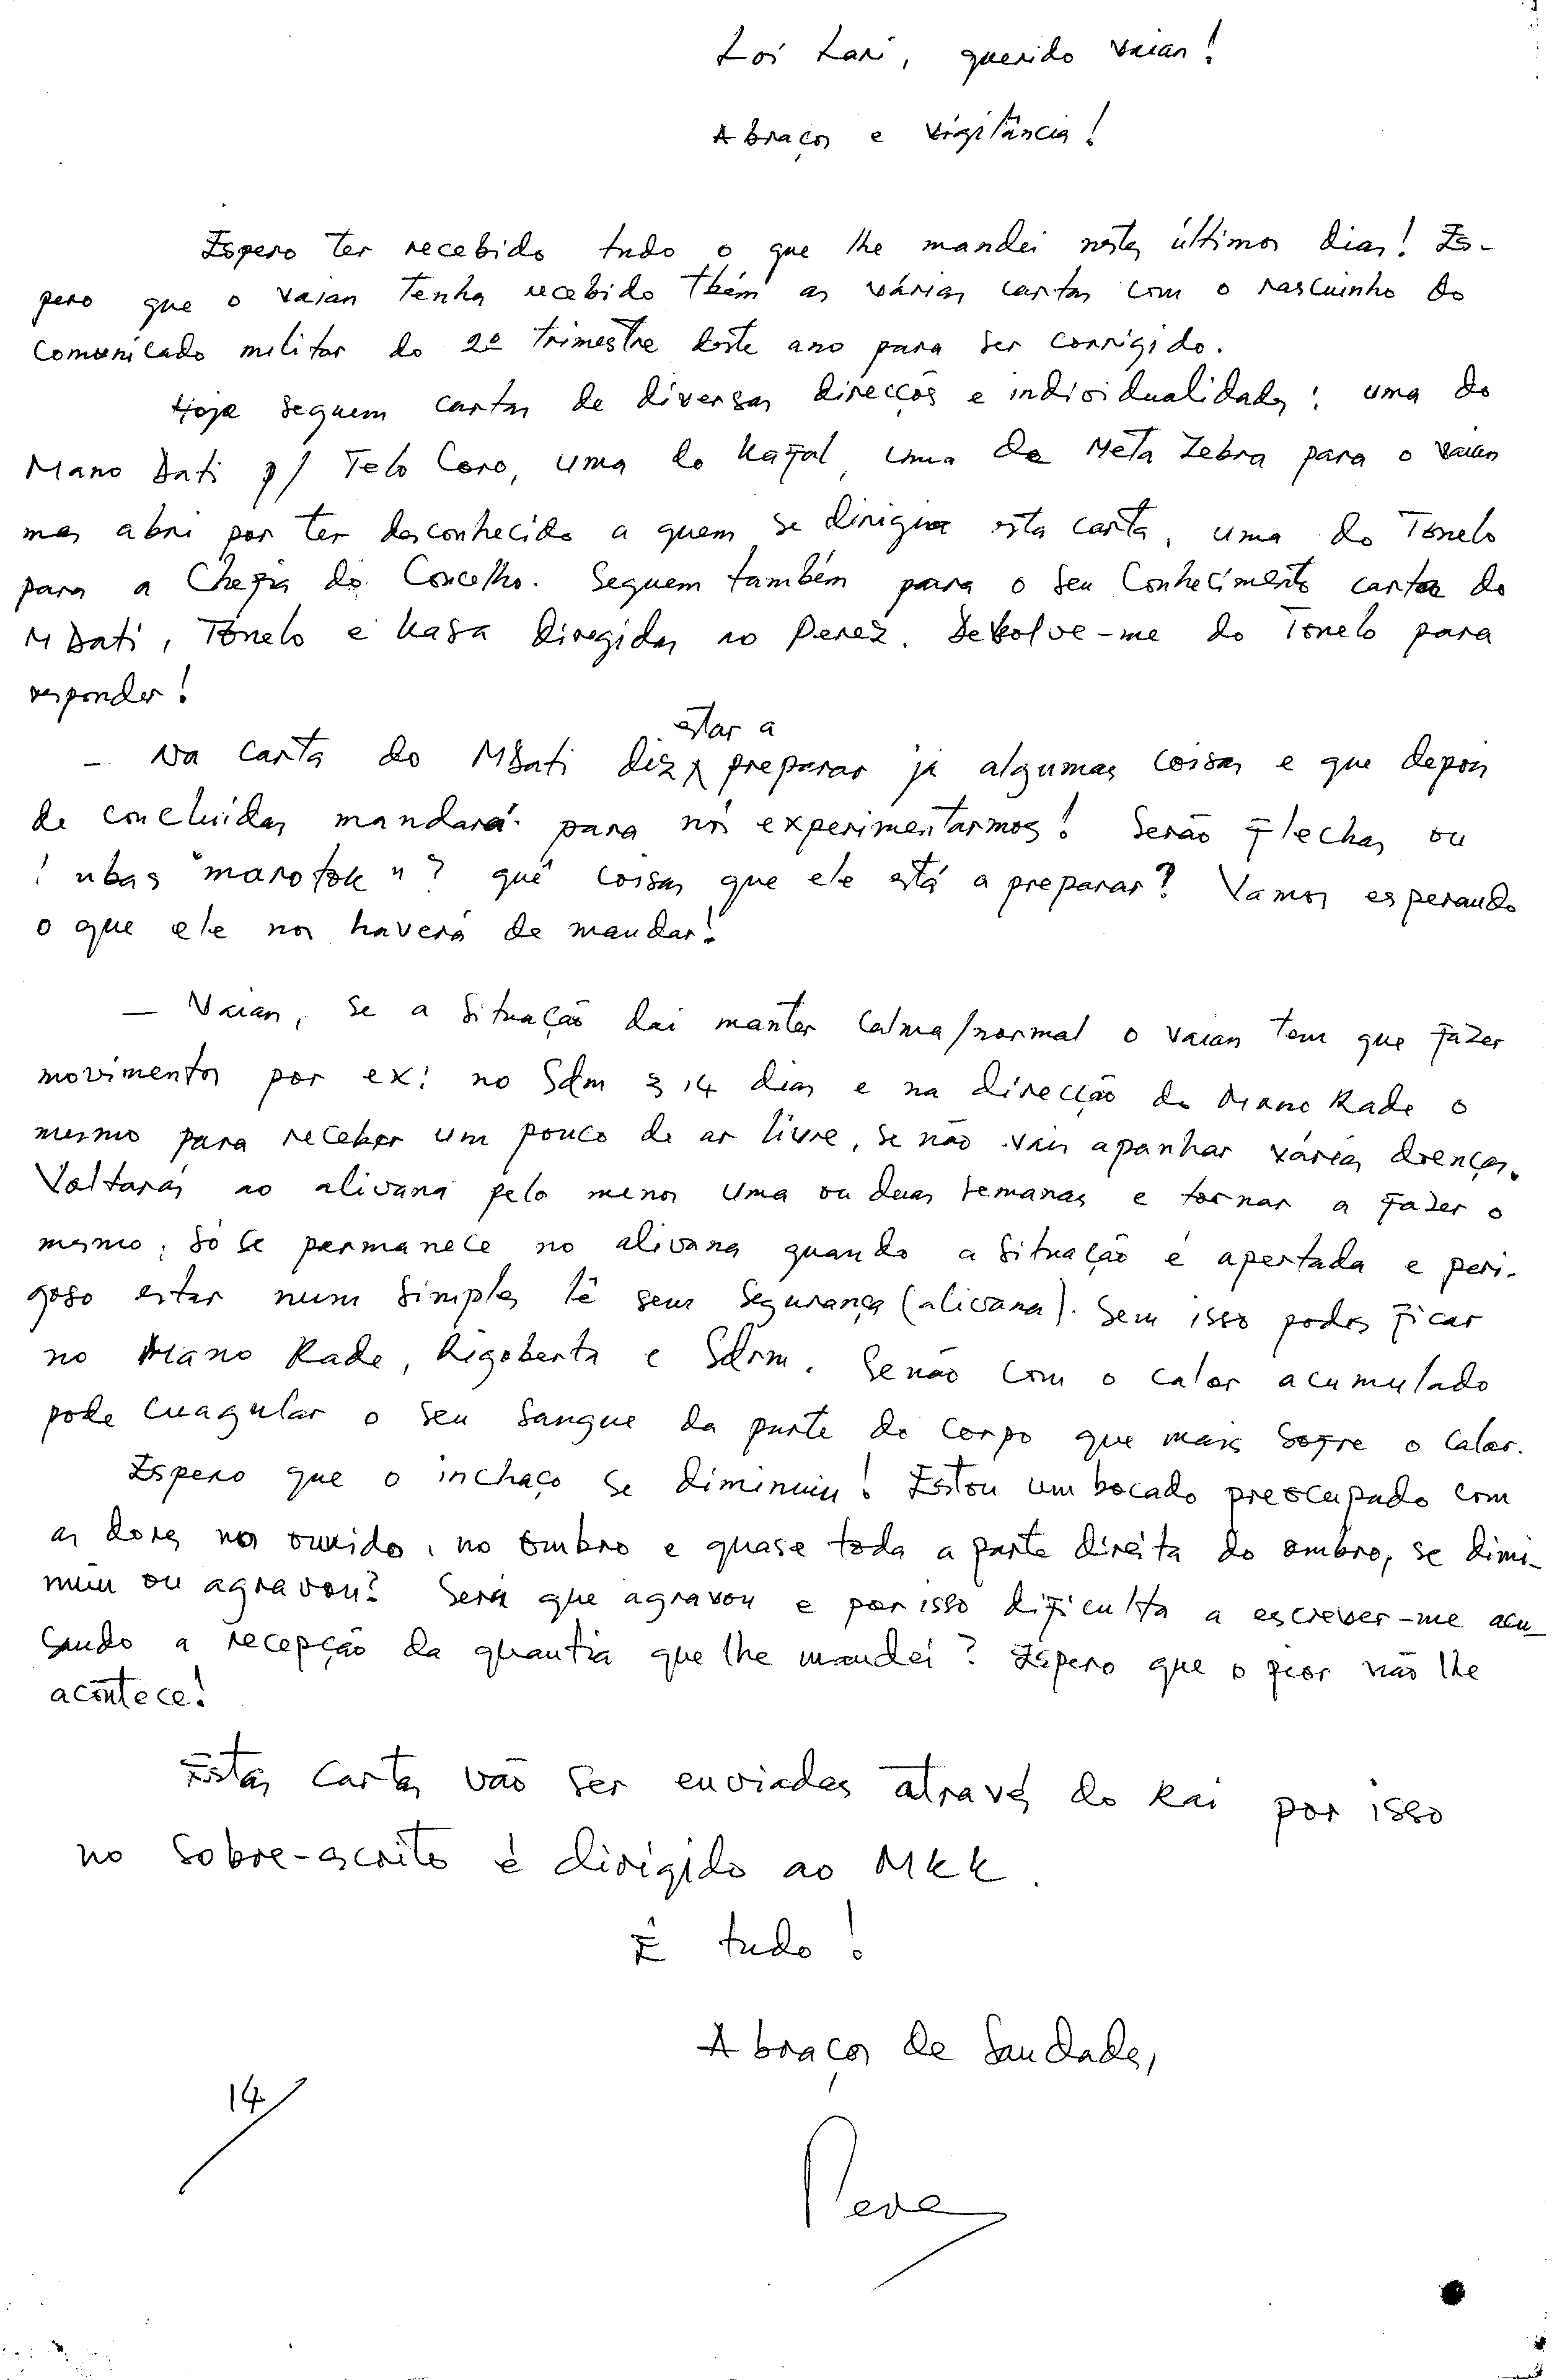 Loi Lari, querido Vaian!
Abraços e Vigilância!
Espero ter recebido tudo o que lhe mandei nestes últimos dias! Es-
pero que o Vaian tenha recebido tbém as várias cartas com o rascuinho do
comunicado militar do 2º trimestre deste ano para ser corrigido.
Hoje seguem cartas de diversas direcções e individualidades: uma do
Mano Dati p/ Telo Coro, uma do Kaful, uma de Meta Zebra para o Vaian
mas abri por ter desconhecido a quem se dirigia esta carta, uma do Tonelo
para a Chefia do Concelho. Seguem também para o seu conhecimento cartas do
M Dati, Tonelo e Kasa diregidas ao Perez. Devolve-me do Tonelo para
responder!
- Na carta do MDati diz estar a preparar já algumas coisas e que depois
de concluidas mandará para nós experimentarmos! Serão flechas ou
ubas "marotok"? quê coisas que ele está a preparar? Vamos esperando
o que ele nos haverá de mandar!
- Vaian, se a situação dai manter calma/normal o Vaian tem que fazer
movimentos por ex: no Sdm 3 14 dias e na direcção do Mano Rade o
mesmo para receber um pouco de ar livre, se não vais apanhar várias doenças.
Voltarás ao alivana pelo menos uma ou duas semanas e tornar a fazer o
mesmo; só se permanece no alivana quando a situação é apertada e peri-
goso estar num simples tê sem segurança (alivana). Sem isso podes ficar
no Mano Rade, Rigoberta e Sdrm. Se não com o calor acumulado
pode cuagular o seu sangue da parte do corpo que mais sofre o calor.
Espero que o inchaço se diminuiu! Estou um bocado preocupado com
as dores no ouvido, no ombro e quase toda a parte direita do ombro, se dimi-
nuiu ou agravou? Será que agravou e por isso dificulta a escrever-me acu-
sando a recepção da quantia que lhe mandei? Espero que o pior não lhe
acontece!
Estas cartas vão ser enviadas através do Rai por isso
no sobre-escrito é dirigido ao MKK.
É tudo!
Abraços de Saudades,
14/